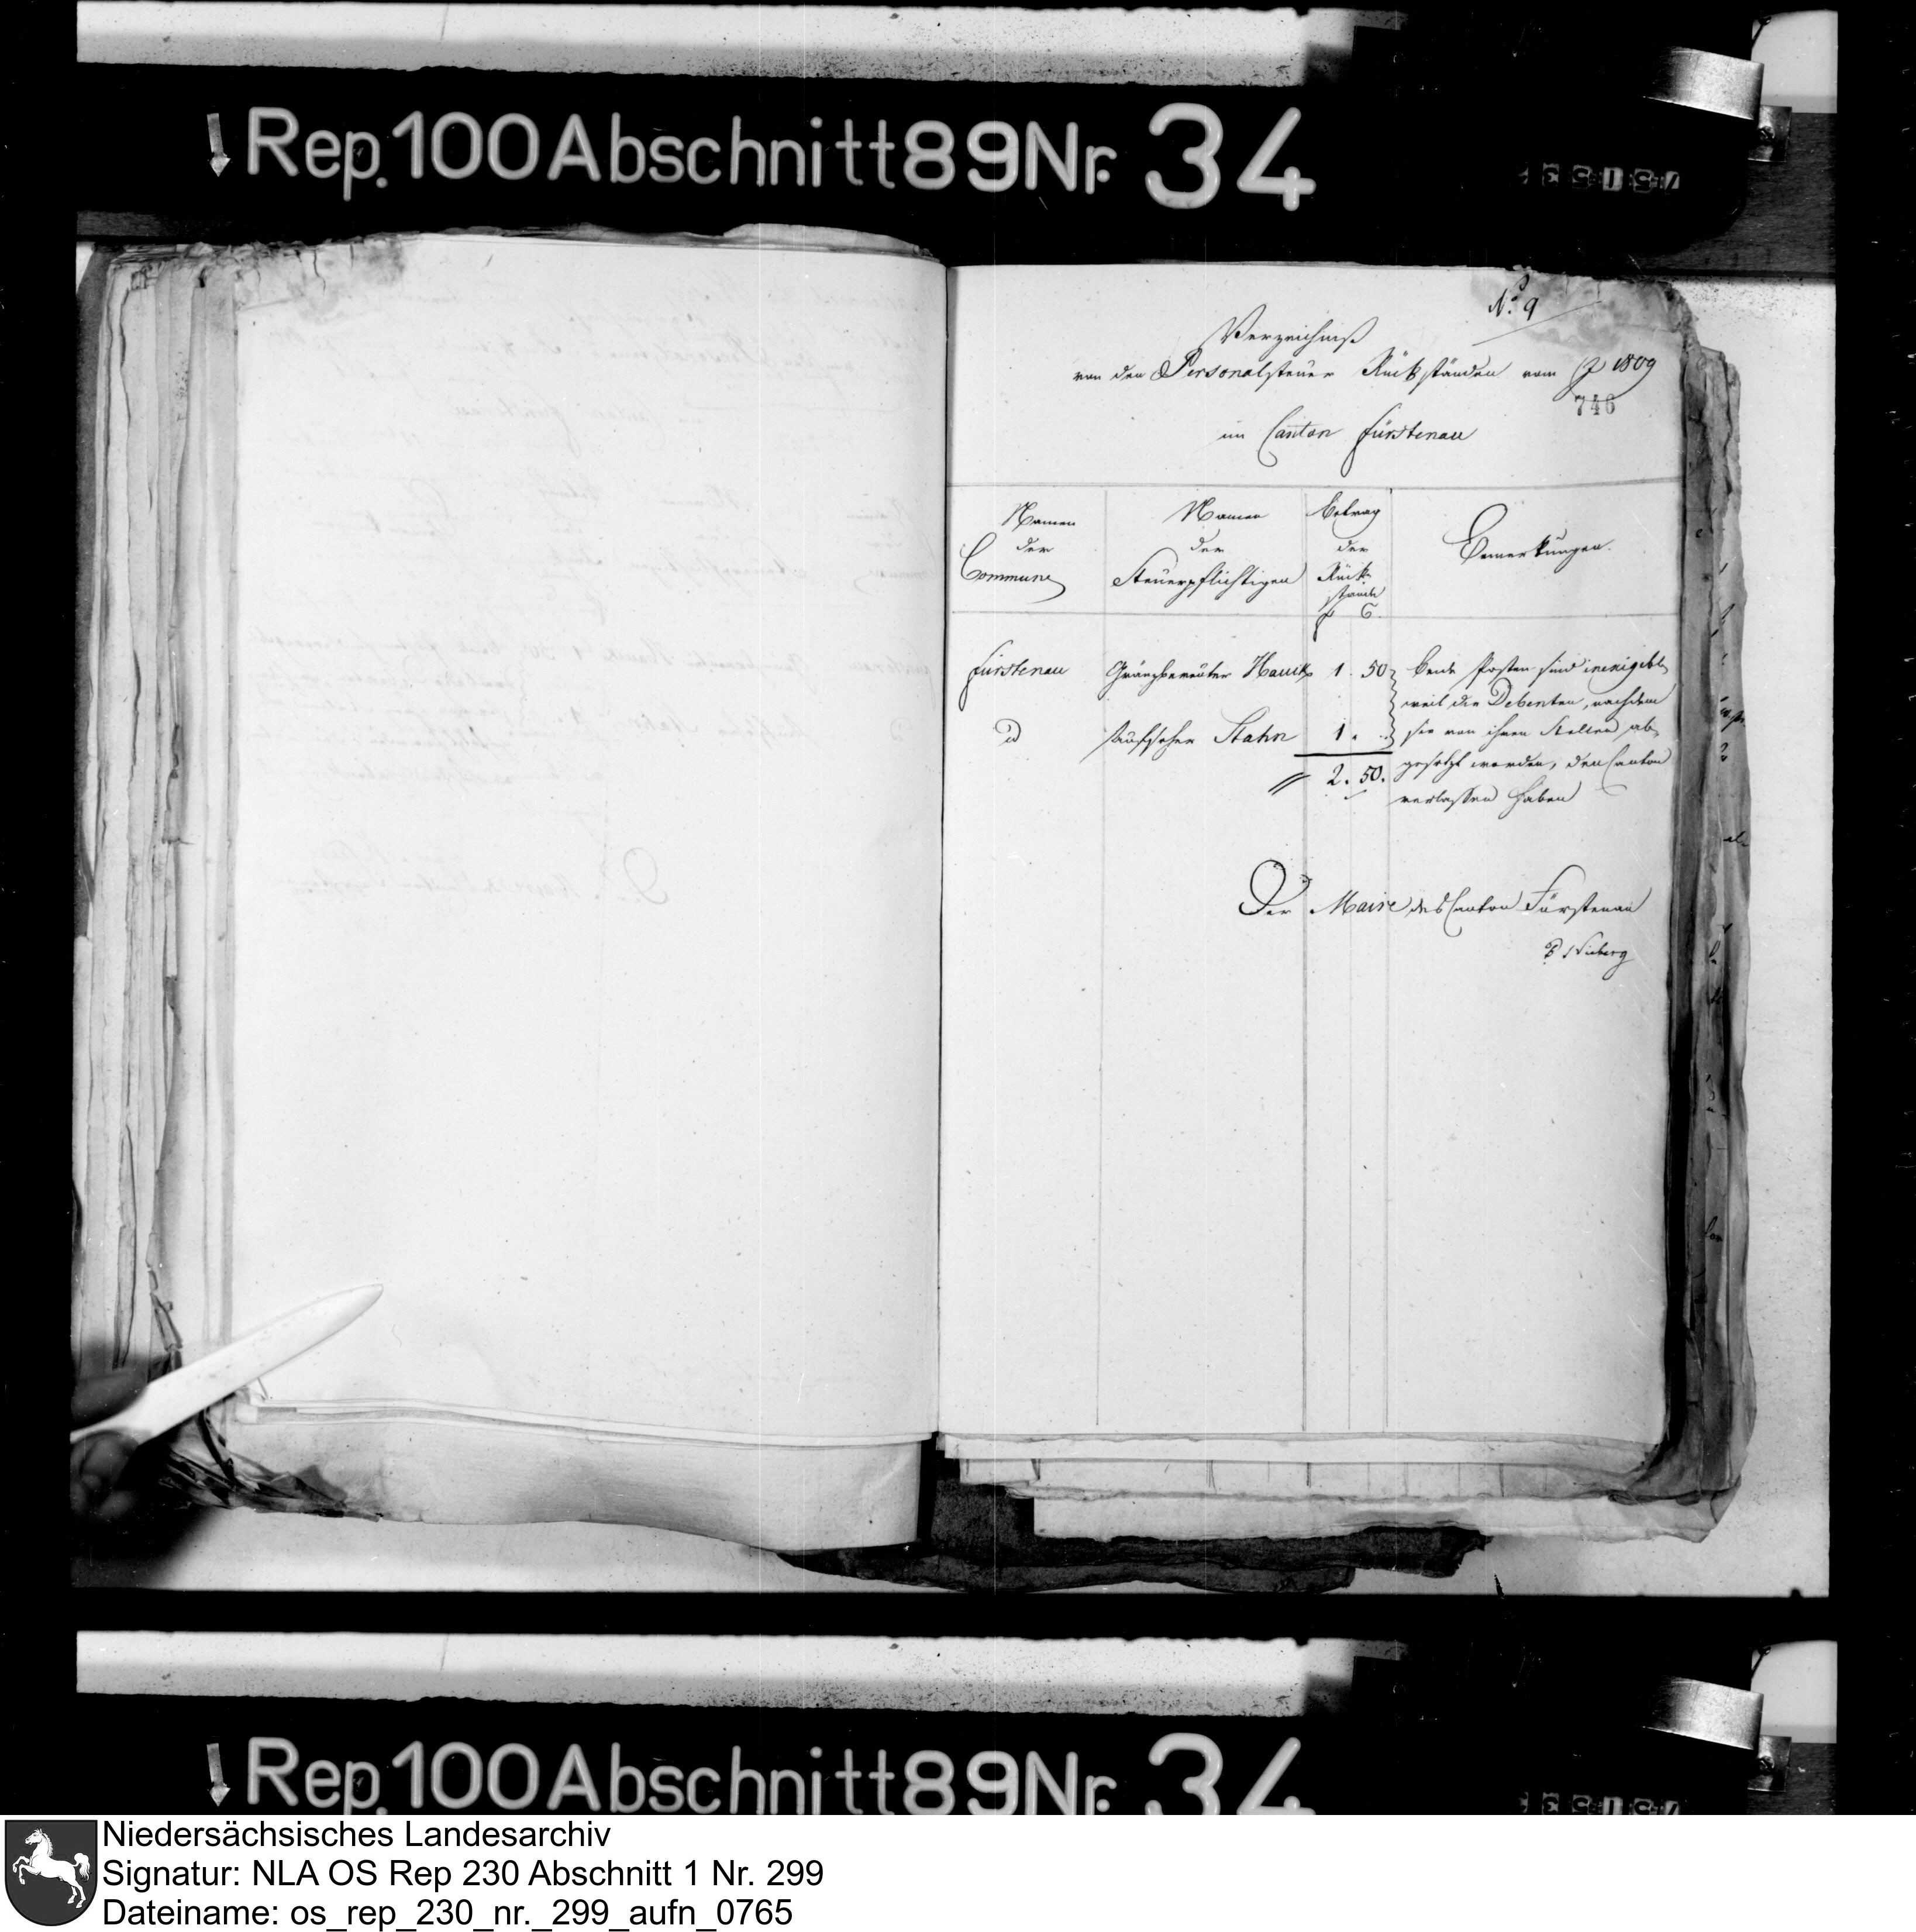 Rep. 100 Abschnitt 89 Nr. 34
No. 9
Verzeichniß
von den Personalsteuer Rückständen vom J 1809
746
im Canton Fürstenau
Namen
der
Commune
Namen
der
Steuerpflichtigen
Betrag
der
Rück-
stände
f C.
Bemerkungen.
Fürstenau Gränzbereuter Hauck 1. 50
d Aufseher Stahn 1. .
2. 50.
beide Posten sind inexigibel,
weil die Debenten, nachdem
sie von ihren Stellen ab-
gesetzt worden, den Canton
verlassen haben
Der Maire des Canton Fürstenau
Nieberg
Rep. 100 Abschnitt 89 Nr. 34
Niedersächsisches Landesarchiv
Signatur: NLA OS Rep 230 Abschnitt 1 Nr. 299
Dateiname: os_rep_230_nr._299_aufn_0765